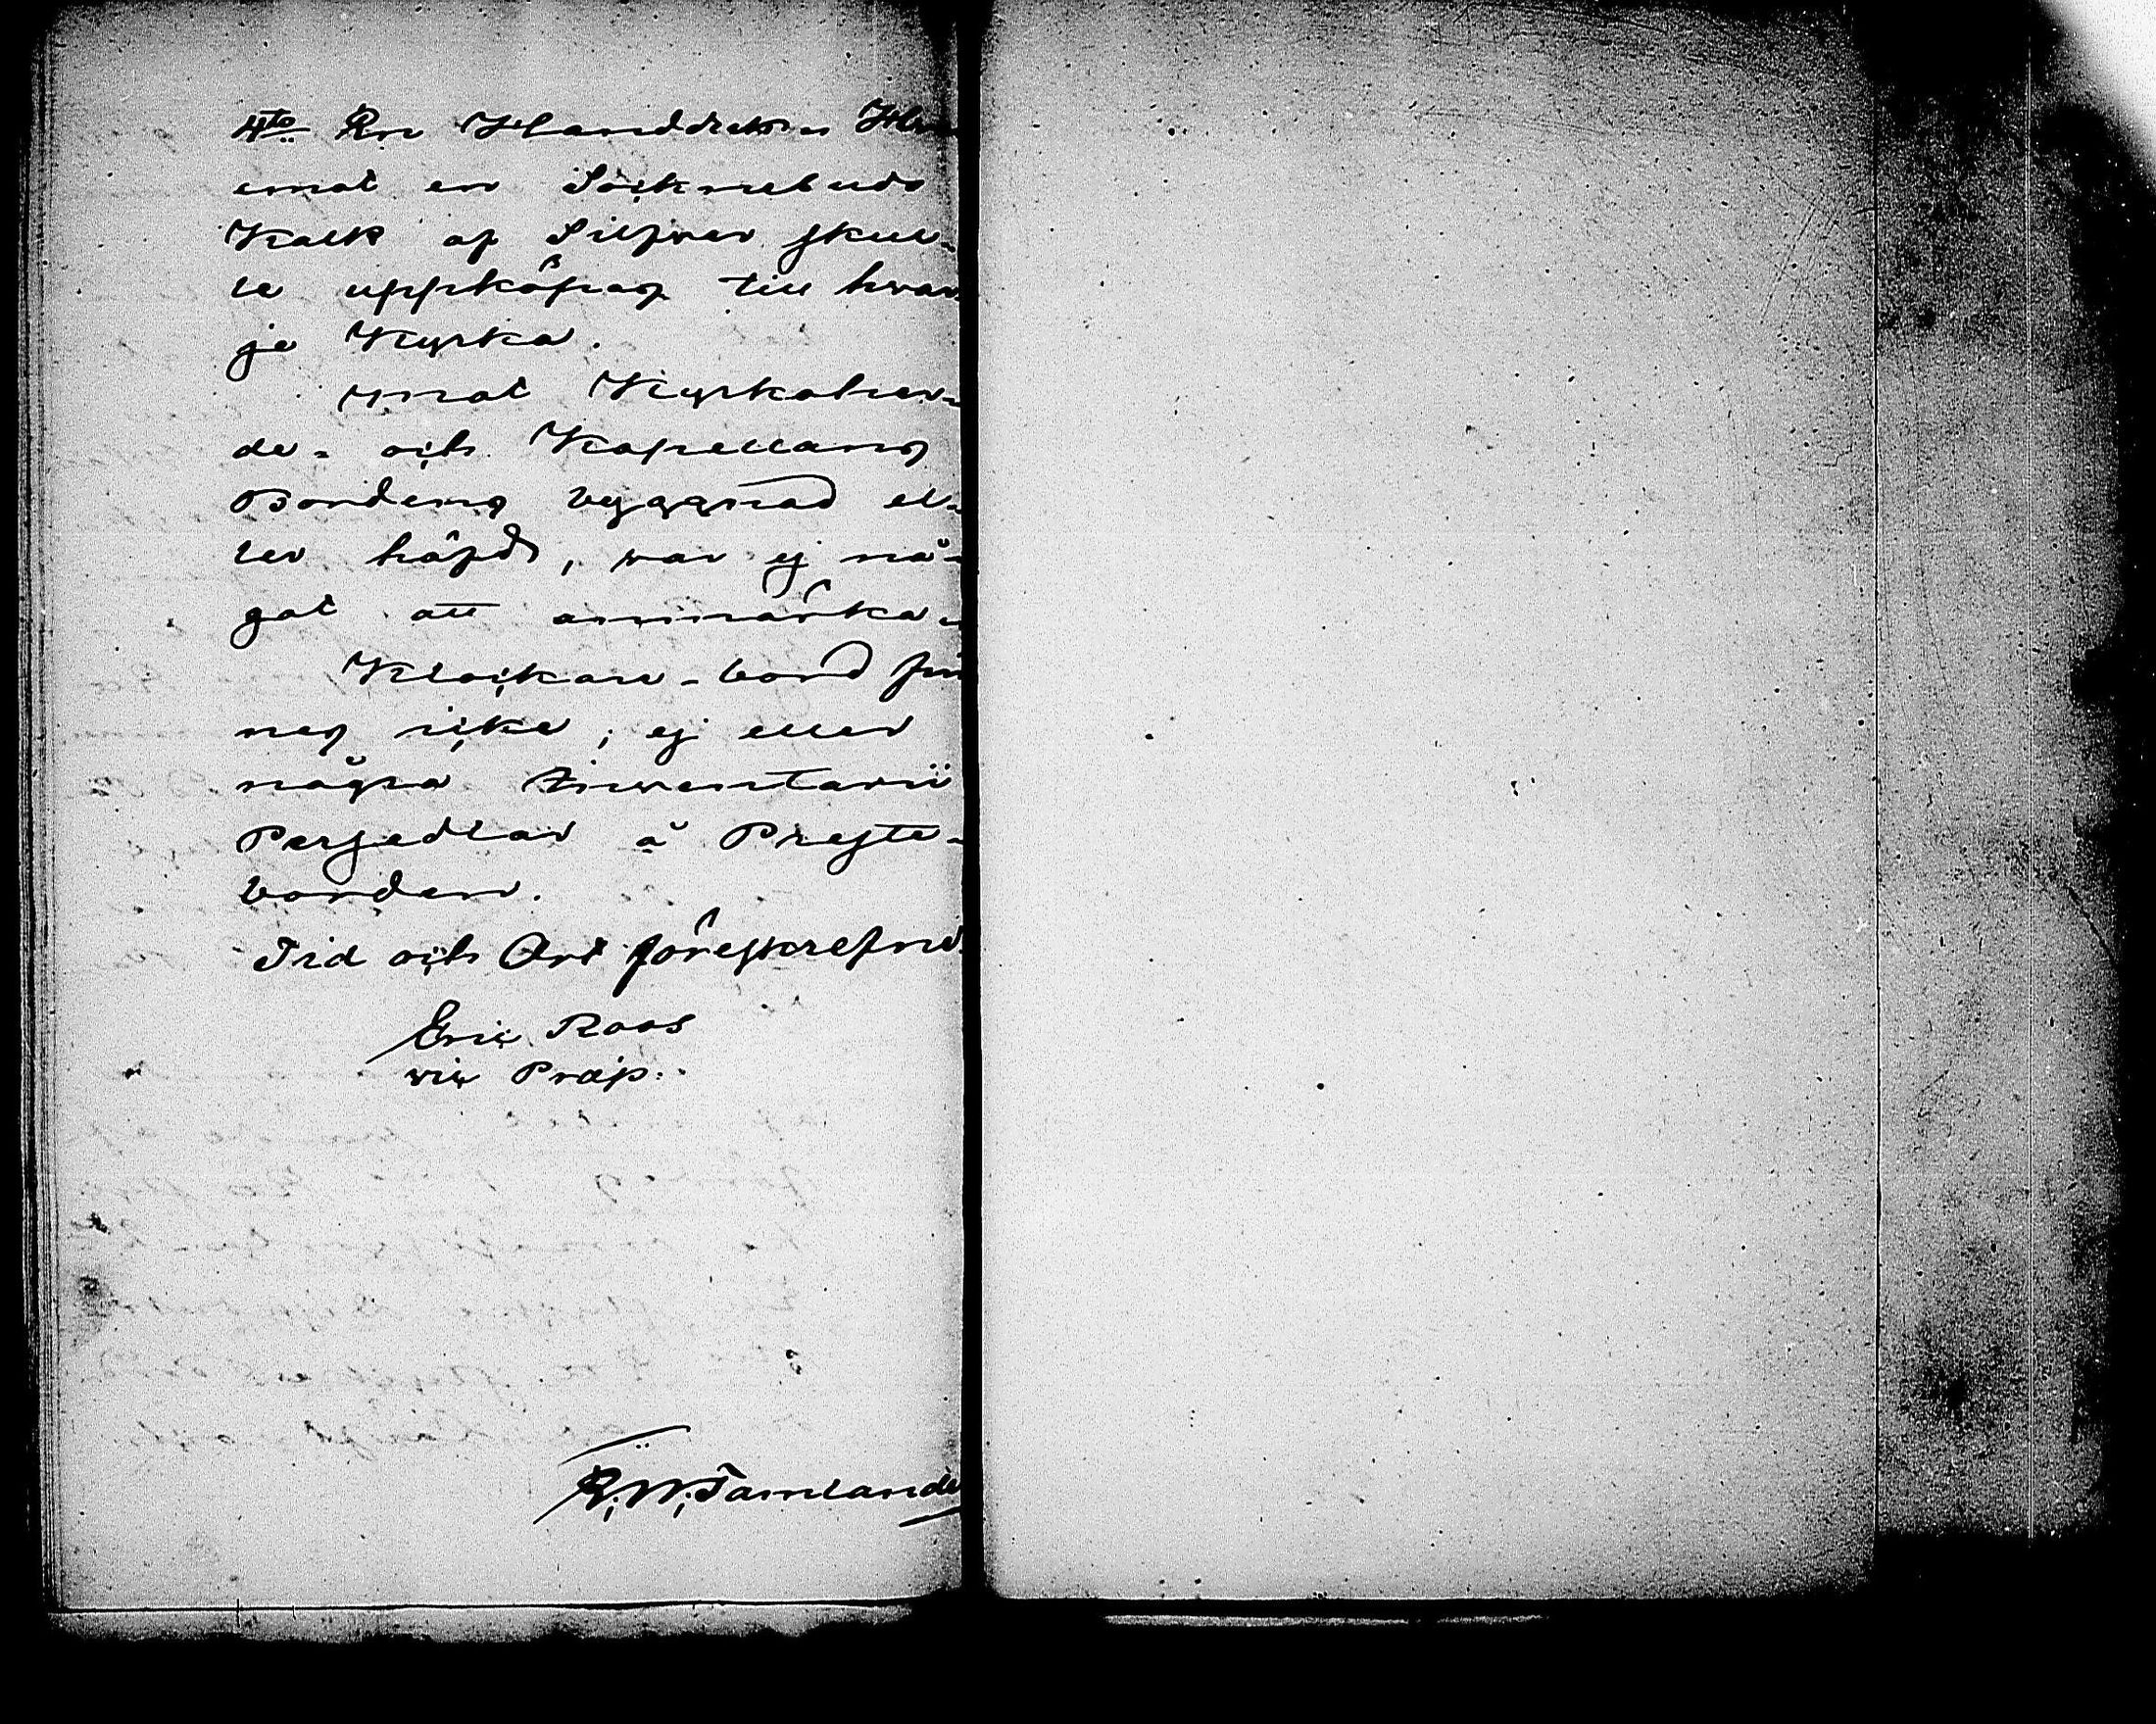 4to En
emot en Socknebuds
Kalk af Silfver skul-
le uppköpas till hvar
je Kyrka.
emot Kyrkoher-
de- och Kapellans
Bordens byggnad el-
ler häfd, var ej nå-
got att anmärka.
Klockare-bord fin
nes icke, ej eller
några Inventarii
Persedlar å Preste-
borden.
Tid och Ort föreskrefne.
Eric Roos
vic Præp:
R. W. Tamlander